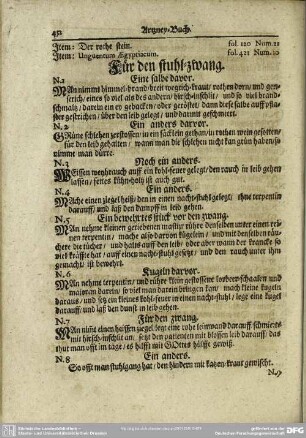 452 Artzney-Buch.
Item: Der rothe stein. fol. 120 Num. 11
Item: Unguentum Ægyptiacum. fol. 421 Num. 10
Für den stuhl-zwang.
N.1 Eine salbe davor.
MAn nimmt himmel-brand breit wegrich-kraut / rothen dorn / und
genserich, eines so viel als des andern / hirsch-inschlit / und so viel brand-
schmaltz / darein in ey gebacken / oder geröstet / dann diese salbe auff pfla-
ster gestrichen / über den leib gelegt / und darmit geschmiert.
N.2 Ein anders darvor.
GRüne schlehen gestossen / in ein säcklein gethan / in rothen wein gesotten /
für den leib gehalten / wann man die schlehen nicht kan grün haben / so
nimme man dürre.
N.3 Noch ein anders.
WEissen weyhrauch auff ein kohl-feuer gelegt / den rauch in leib gehen
lassen / feltes kühn-holtz ist auch gut.
N.4 Ein anders.
MAche einen ziegel heiß / den ziegel in einen nacht-stuhl gelegt / thue terpentin
darauff / und laß den dampff in leib gehen.
N.5 Ein bewehrtes stück vor den zwang.
MAn nehme kleinen geriebenen mastix rühre denselben unter einen rei-
nen terpentin / mache also davon kügelein / und mit denselben räu-
chere die tücher / und halts auff den leib / oder aber wann der krancke so
viel kräffte hat / auff einen nachtstuhl gesetzt / und den rauch unter ihn
gemacht / ist bewehrt.
N.6 Kugeln darvor.
MAn nehme terpentin / und rühre klein gestossene lorbeer-schaalen und
majoran darein so viel man darein bringen kan / mach kleine kugeln
daraus / und setz ein kleines kohl-feuer in einen nacht-stuhl / lege eine kugel
darauff / und laß den dunst in leib gehen.
N.7 Für den zwang.
MAn nimt einen heissen ziegel legt eine rohe leinwand darauff schmierts
mit hirsch-inschlit an / setzt den patienten mit blossen leib darauff: das
thut man offt im tage / es hilfft mit GOttes hülffe gewiß.
N.8 Ein anders.
So offt man stuhlgang hat / den hindern mit katzen-kraut gewischt.
N.9